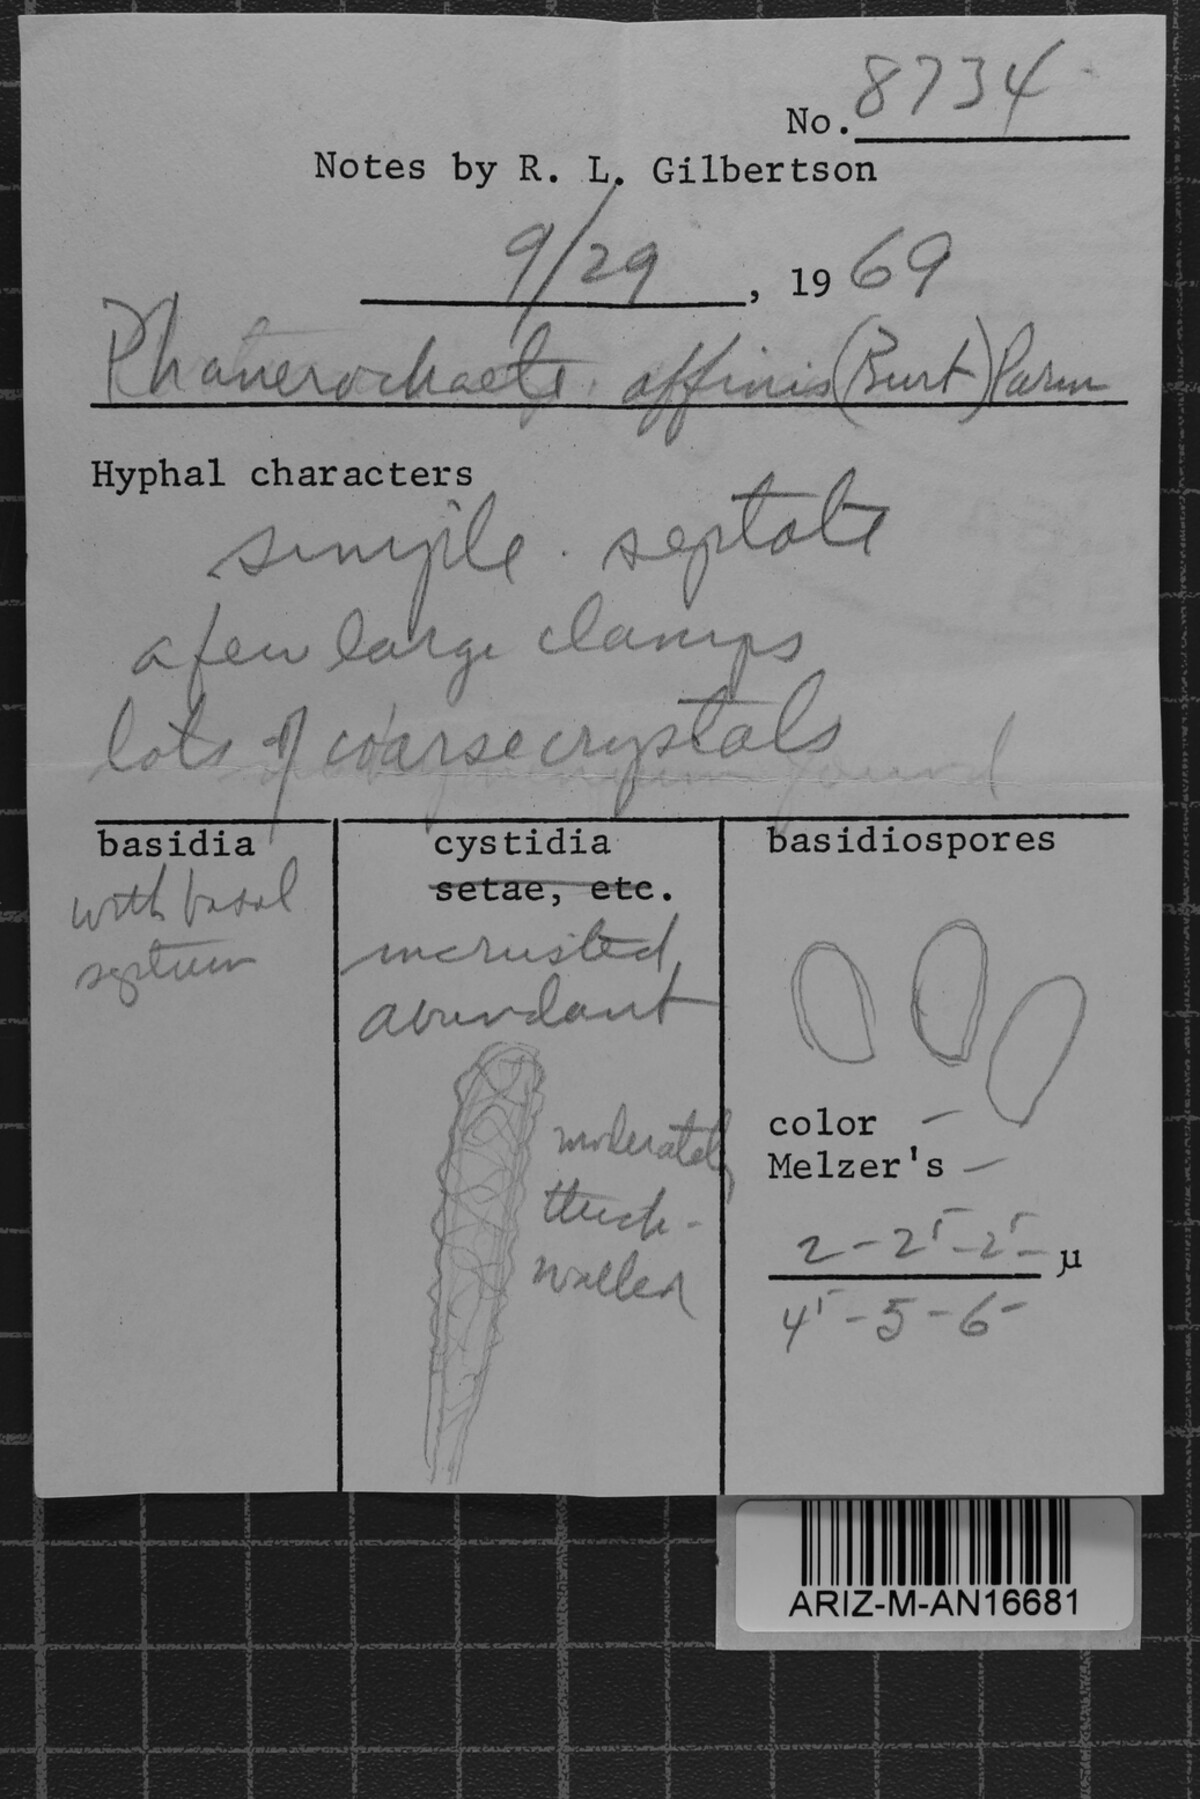 No. 8734
Notes by R. L. Gilbertson
9/29, 1969
Phanerochaete affinis (Burt) Parm
Hyphal characters
simple septate
a few large clamps
lots of coarse crystals
basidia
with basal
septum
cystidia
setae, etc.
incrusted,
abundant
moderately
thick-
walled
basidiospores
color –
Melzer's –
2 – 2⁵ – 2⁵ – µ
4⁵ – 5 – 6 –
ARIZ-M-AN16681